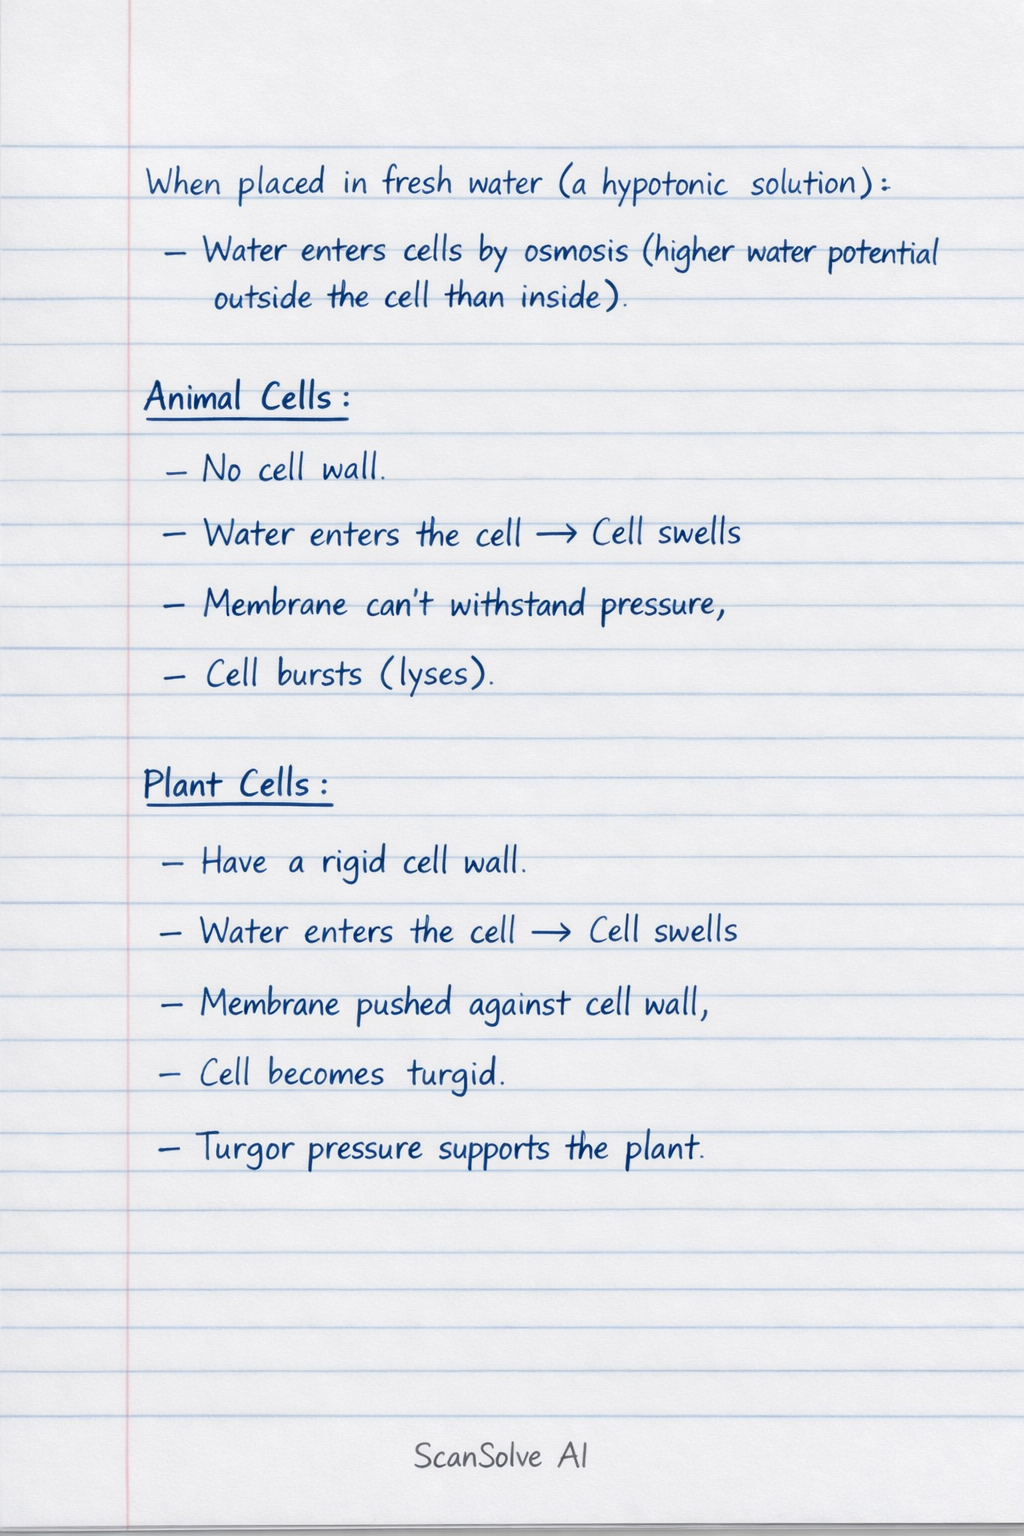 When placed in fresh water (a hypotonic solution):
– Water enters cells by osmosis (higher water potential
outside the cell than inside).
Animal Cells:
– No cell wall.
– Water enters the cell → Cell swells
– Membrane can't withstand pressure,
– Cell bursts (lyses).
Plant Cells:
– Have a rigid cell wall.
– Water enters the cell → Cell swells
– Membrane pushed against cell wall,
– Cell becomes turgid.
– Turgor pressure supports the plant.
ScanSolve AI